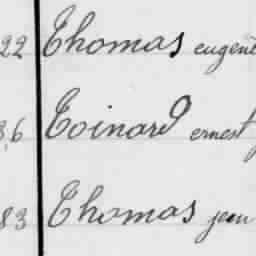 22 Thomas eugene
36 Toinard ernest
83 Thomas jean